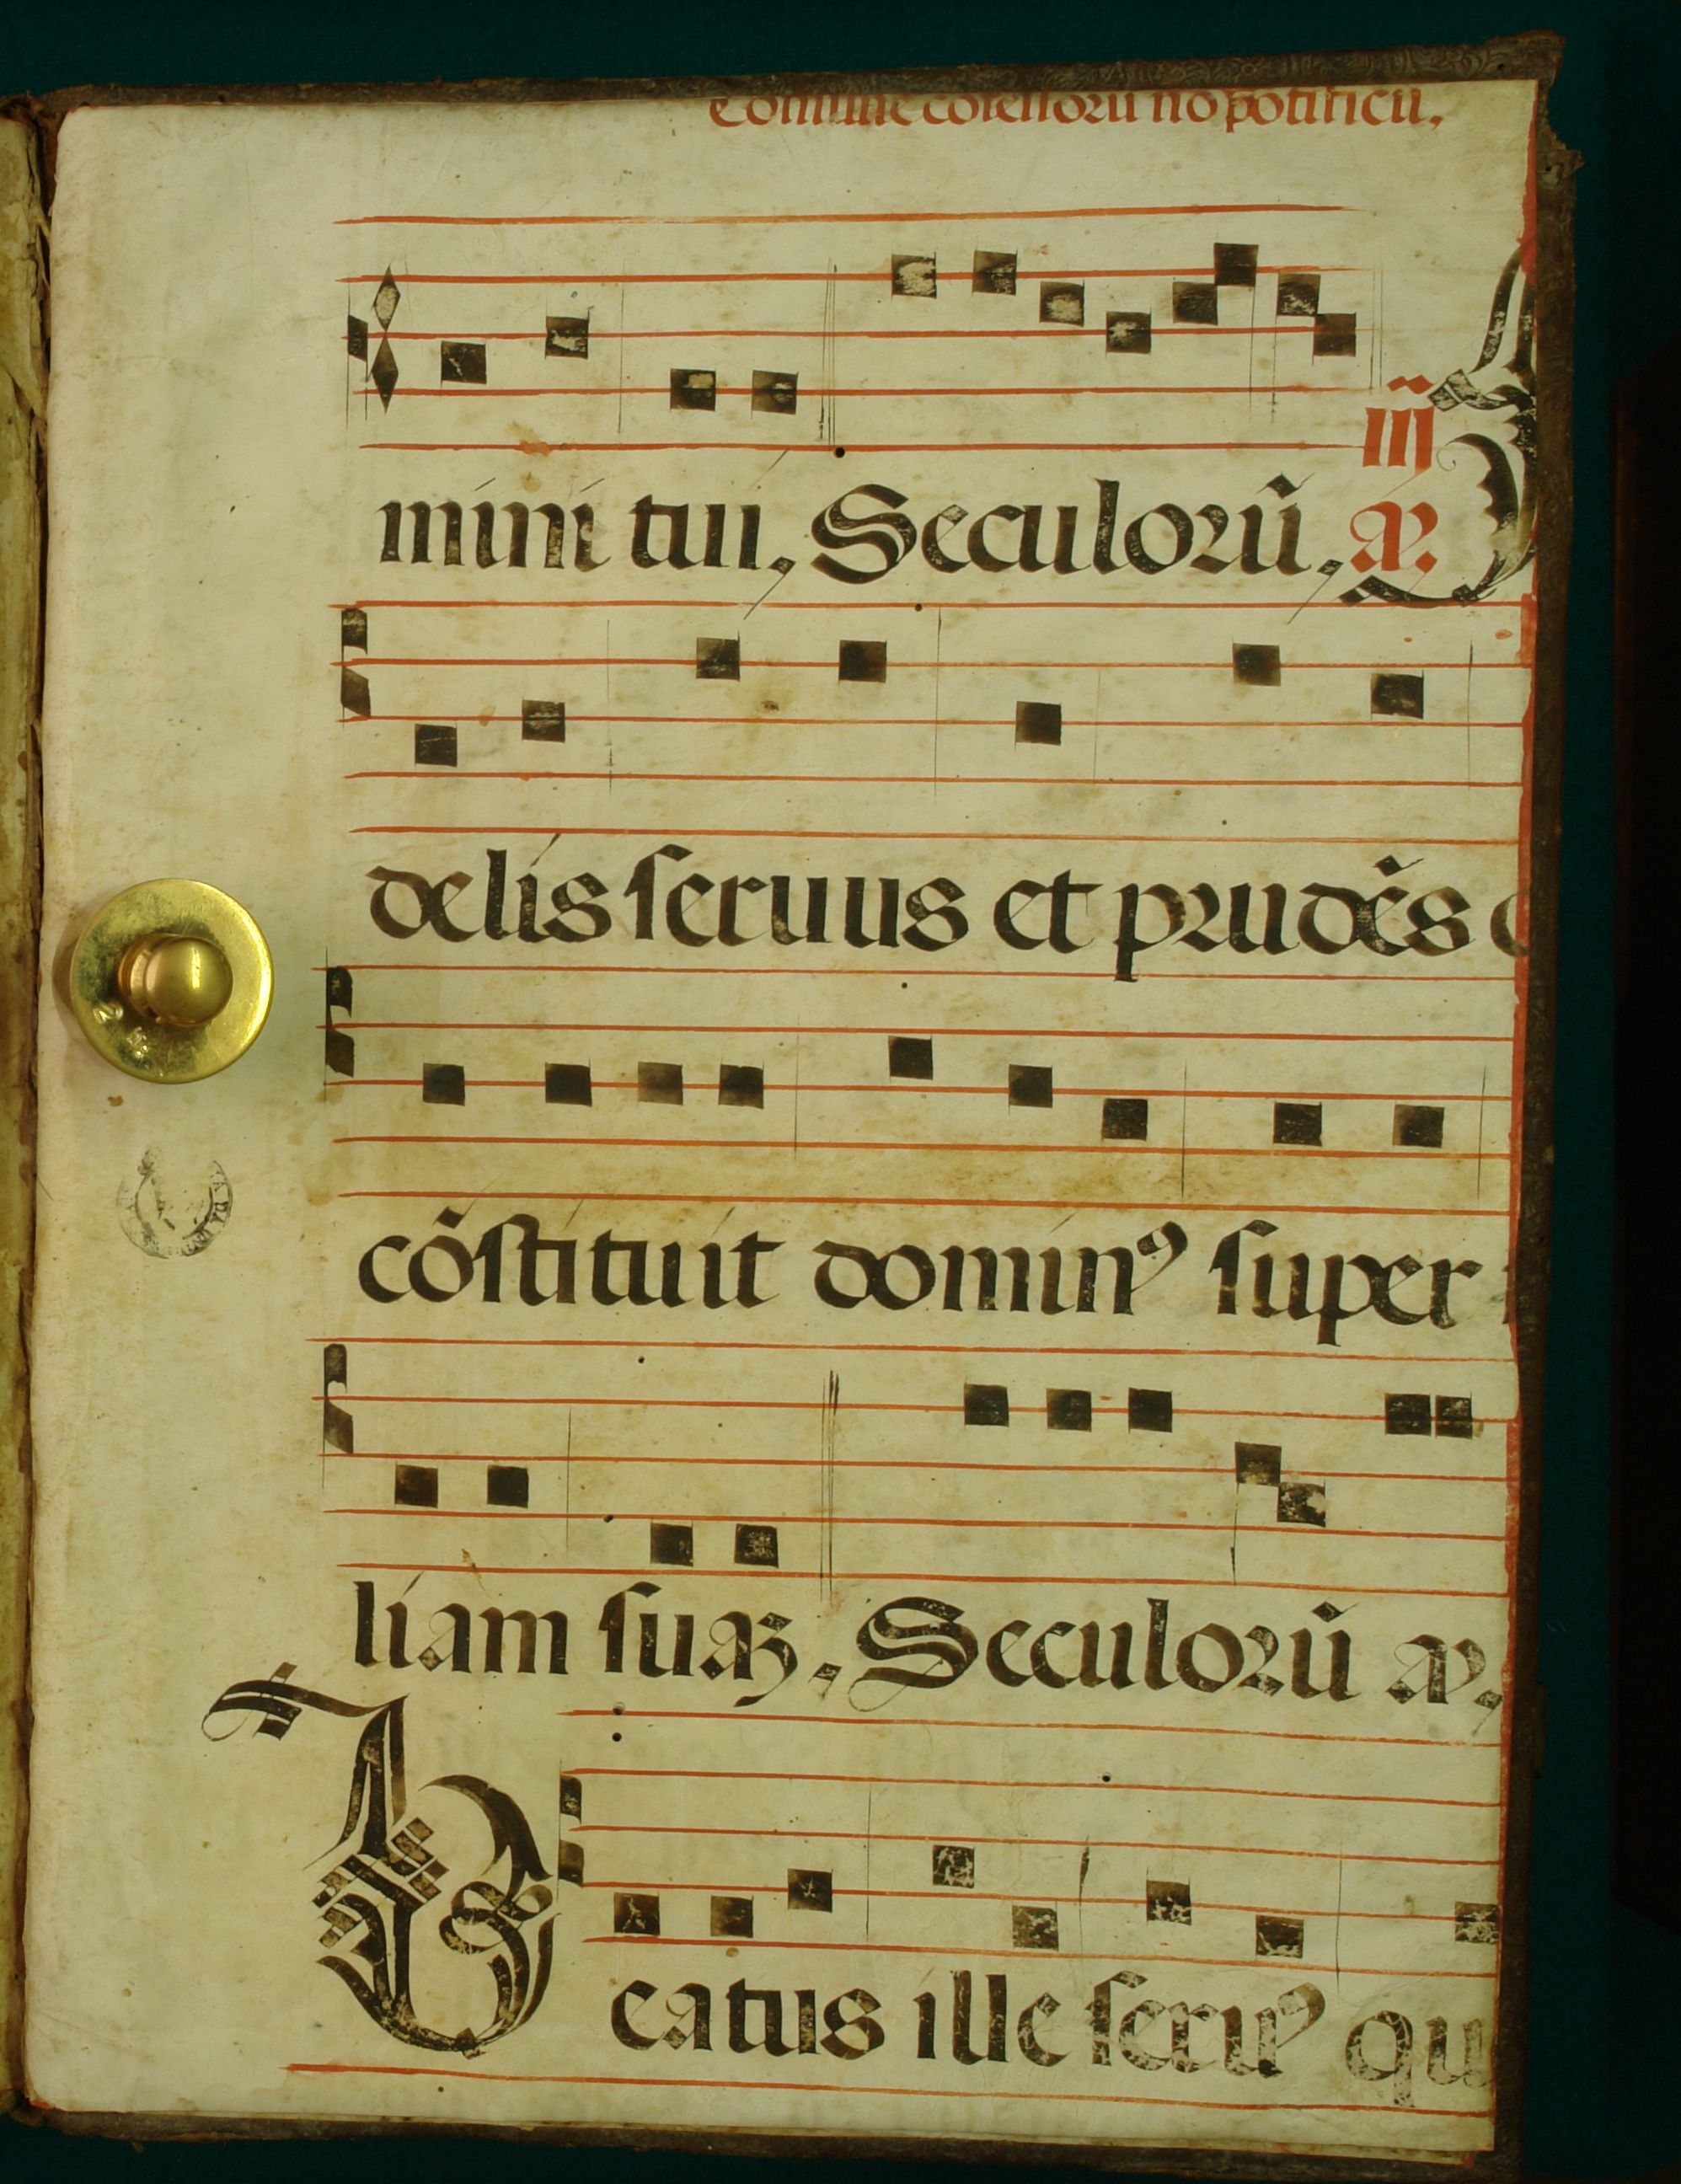 Comune cōfessorū nō pōtificū.
mini tui, Seculorū, iij aꝫ.
delis ſeruus et prudēs
cōſtituit dominꝰ ſuper
liam ſuaꝫ, Seculorū aꝫ.
Beatus ille ſeruꝰ qu